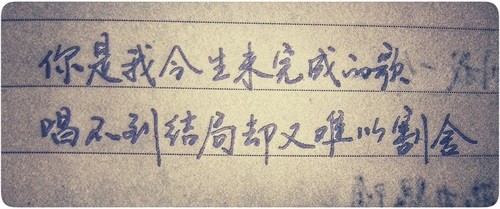 你是我今生未完成的歌
唱不到结局却又难以割舍